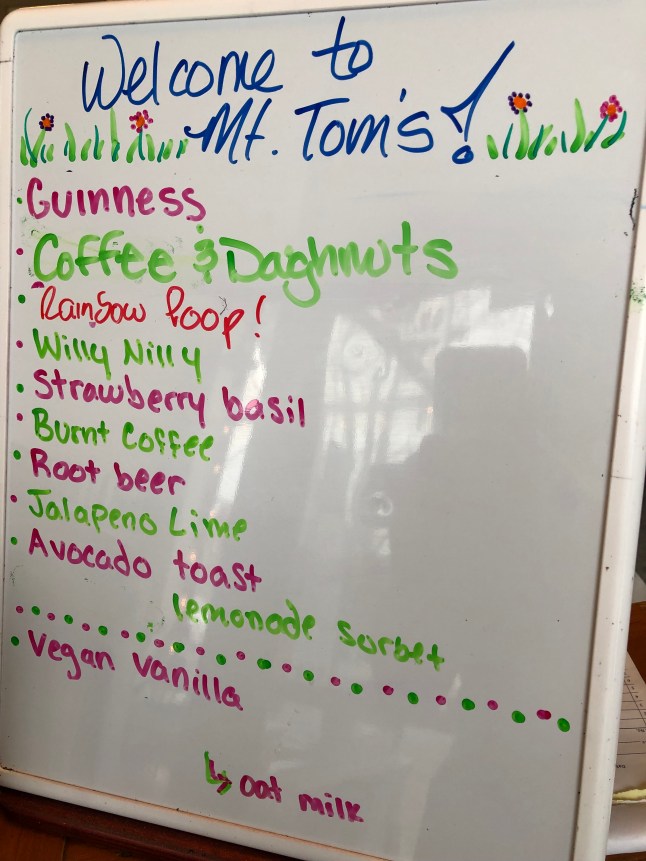 Welcome to
Mt. Tom's!
• Guinness
• Coffee & Daghnuts
• Rainbow Poop!
• Willy Nilly
• Strawberry basil
• Burnt Coffee
• Root beer
• Jalapeno Lime
• Avocado toast
lemonade sorbet
• Vegan vanilla
↳ oat milk